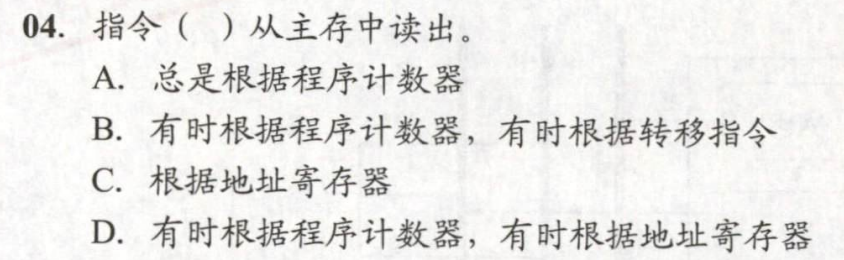 04. 指令（　）从主存中读出。
A. 总是根据程序计数器
B. 有时根据程序计数器，有时根据转移指令
C. 根据地址寄存器
D. 有时根据程序计数器，有时根据地址寄存器